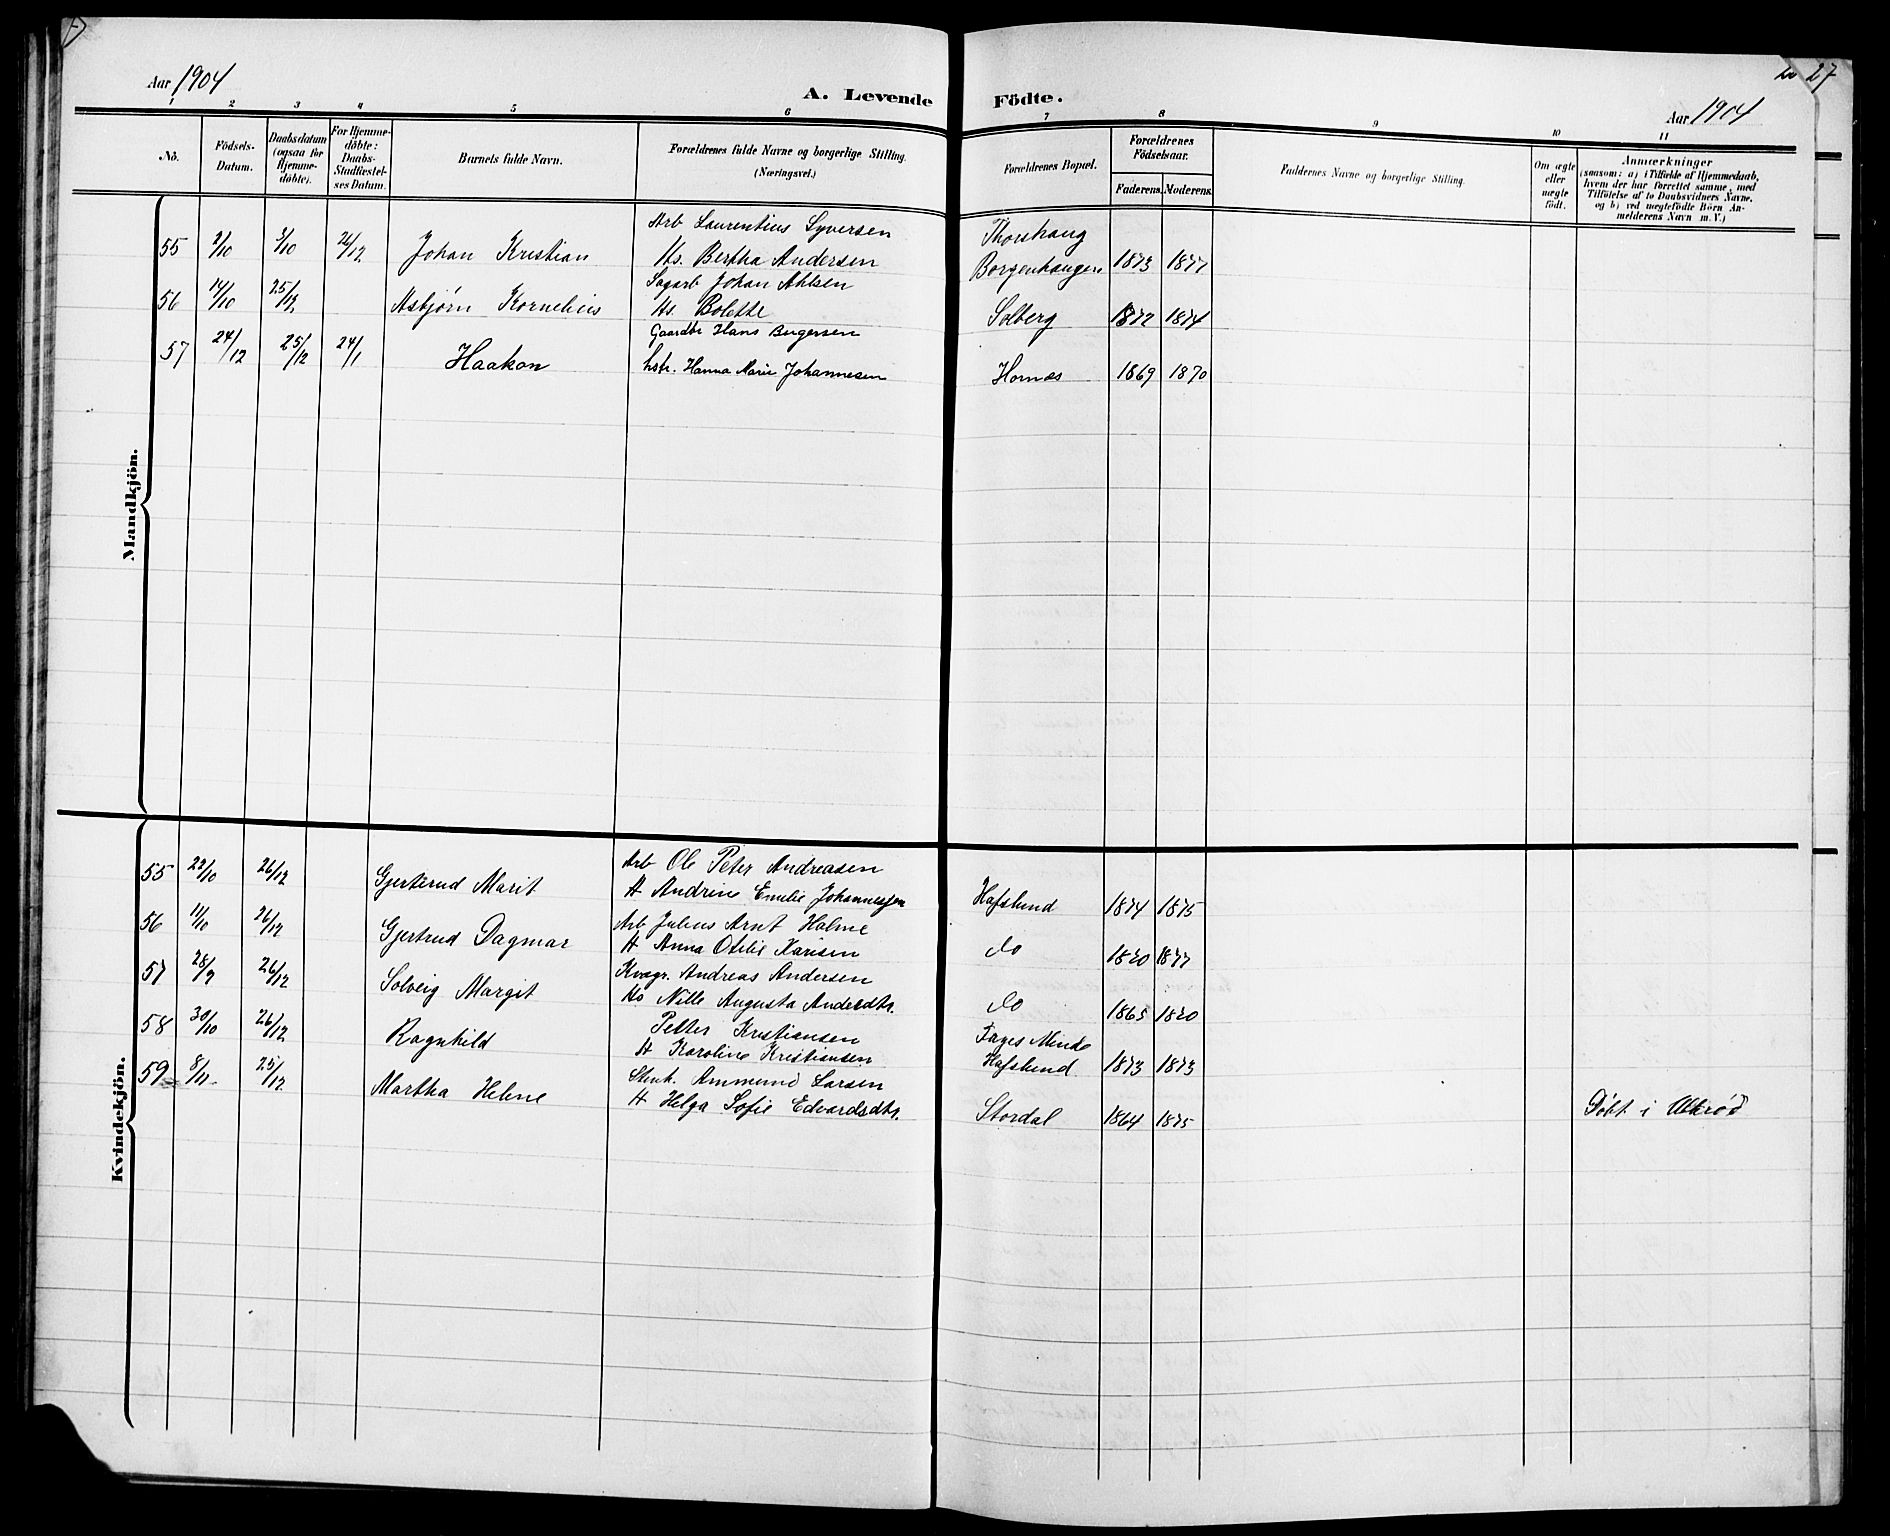 Aar 1904
A. Levende Födte.
27
Aar 1904
1 2 3 4 5 6 7 8 9 10 11
No.
Födsels-Datum.
Daabsdatum (ogsaa for Hjemme-döbte).
For Hjemme-döbte: Daabs-Stadfæstel-ses Datum.
Barnets fulde Navn.
Forældrenes fulde Navne og borgerlige Stilling. (Næringsvei.)
Forældrenes Bopæl.
Forældrenes Födselsaar.
Faderens. Moderens.
Faddernes Navne og borgerlige Stilling.
Om ægte eller uægte födt.
Anmærkninger
(saasom: a) i Tilfælde af Hjemmedaab,
hvem der har forrettet samme, med
Tilföielse af to Daabsvidners Navne.
og b) ved uægtefödte Börn An-
melderens Navn m. V.)
Mandkjön.
Arb Laurentius Syversen Thorshaug
55 2/10 3/10 26/12 Johan Kristian Hs. Bertha Andersen Borgenhaugen 1873 1877
Sagarb Johan Ahlsen
56 14/10 25/12 Asbjørn Kornelius Hs. Bolette Solberg 1872 1874
Gaardbr Hans Birgersen
57 24/12 25/12 24/1 Haakon hstr. Hanna Marie Johannesen Hornæs 1869 1870
Kvindekjön.
Arb Ole Peter Andreasen
55 22/10 26/12 Gjerterud Marit H Andrine Emelie Johannessen Hafslund 1874 1875
Arb Julius Arnt Holme
56 11/10 26/12 Gjertrud Dagmar H Anna Otelie Karisen do 1880 1877
Andreas Andersen
57 28/9 26/12 Solveig Margit Hs Nille Augusta Andersdtr. do 1865 1880
Petter Kristiansen Minde
58 30/10 26/12 Ragnhild H Karoline Kristiansen Hafslund 1873 1873
Stenh. Ammund Larsen
59 8/11 25/12 Martha Helene H Helga Sofie Edvardsdtr. Stordal 1864 1875 Døbt i Ulkrød